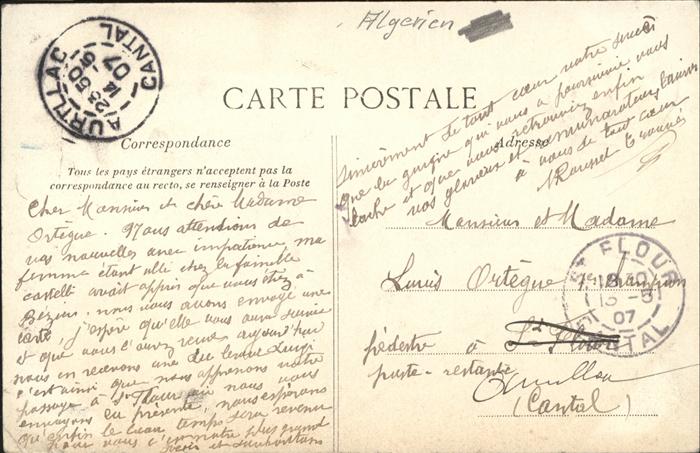 Algerien
AURILLAC
CANTAL
CARTE POSTALE
Correspondance
Adresse
Tous les pays étrangers n'acceptent pas la
correspondance au recto, se renseigner à la Poste
Cher Monsieur et chère Madame
Ortègue. Nous attendions de
vos nouvelles avec impatience, ma
femme étant allé chez la famille
Castelli avait appris que vous étiez à
Béziers. nous vous avions envoyé une
carte, j'espère qu'elle vous aura suivie
et que vous l'aurez reçue aujourd'hui
nous en recevons une de
c'est ainsi que nous apprenons votre
passage à St Flour où nous vous
envoyons la présente, nous espérons
qu'enfin le beau temps sera revenu
pour vous
sincèrement de tout cœur votre succès
que la guigne qui vous a poursuivie vous
lache et que vous retrouviez enfin
vos glorieux et
à vous de tout cœur
Monsieur et Madame
Louis Ortègue
pédestre à St Flour
poste-restante
(Cantal)
ST FLOUR
CANTAL
07